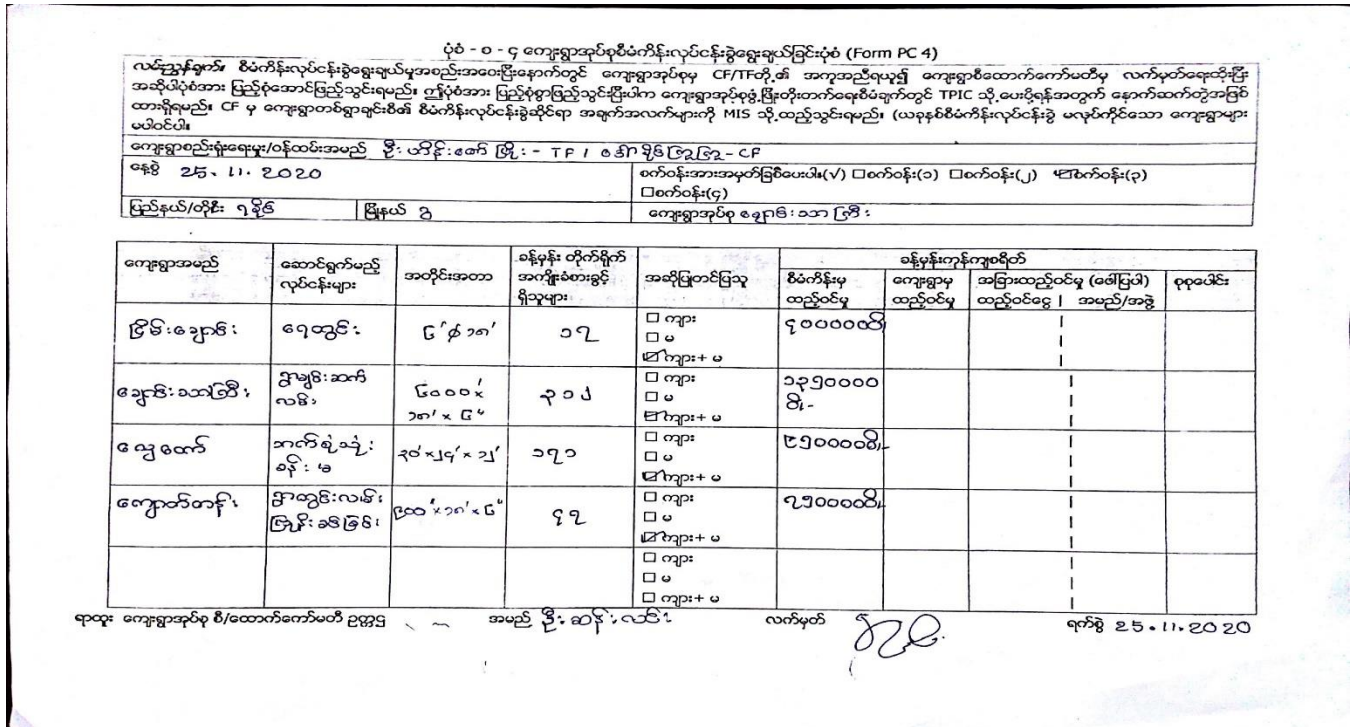 ပုံစံ - စ - ၄ ကျေးရွာအုပ်စုစီမံကိန်းလုပ်ငန်းခွဲရွေးချယ်ခြင်းပုံစံ (Form PC 4)
လမ်းညွှန်ချက်။ စီမံကိန်းလုပ်ငန်းခွဲရွေးချယ်မှုအစည်းအဝေးပြီးနောက်တွင် ကျေးရွာအုပ်စုမှ CF/TFတို့၏ အကူအညီရယူ၍ ကျေးရွာစီထောက်ကော်မတီမှ လက်မှတ်ရေးထိုးပြီး
အဆိုပါပုံစံအား ပြည့်စုံအောင်ဖြည့်သွင်းရမည်။ ဤပုံစံအား ပြည့်စုံစွာဖြည့်သွင်းပြီးပါက ကျေးရွာအုပ်စုဖွံ့ဖြိုးတိုးတက်ရေးစီမံချက်တွင် TPIC သို့ပေးပို့ရန်အတွက် နောက်ဆက်တွဲအဖြစ်
ထားရှိရမည်။ CF မှ ကျေးရွာတစ်ရွာချင်းစီ၏ စီမံကိန်းလုပ်ငန်းခွဲဆိုင်ရာ အချက်အလက်များကို MIS သို့ထည့်သွင်းရမည်။ (ယခုနှစ်စီမံကိန်းလုပ်ငန်းခွဲ မလုပ်ကိုင်သော ကျေးရွာများ
မပါဝင်ပါ။
ကျေးရွာစည်းရုံးရေးမှူး/ဝန်ထမ်းအမည် ဦးဟိန်းဇော်ဖြိုး - TF / ဒေါ်ခိုင်ဩဩ - CF
နေ့စွဲ 25. 11. 2020 စက်ဝန်းအားအမှတ်ခြစ်ပေးပါ။(√) □စက်ဝန်း(၁) □စက်ဝန်း(၂) ☑စက်ဝန်း(၃)
□စက်ဝန်း(၄)
ပြည်နယ်/တိုင်း ရခိုင် မြို့နယ် ဂွ ကျေးရွာအုပ်စု ချောင်းသာကြီး
ခန့်မှန်းကုန်ကျစရိတ်
ကျေးရွာအမည် ဆောင်ရွက်မည့် လုပ်ငန်းများ အတိုင်းအတာ ခန့်မှန်း တိုက်ရိုက် အကျိုးခံစားခွင့် ရှိသူများ အဆိုပြုတင်ပြသူ စီမံကိန်းမှ ထည့်ဝင်မှု ကျေးရွာမှ ထည့်ဝင်မှု အခြားထည့်ဝင်မှု (ဖေါ်ပြပါ) ထည့်ဝင်ငွေ | အမည်/အဖွဲ့ စုစုပေါင်း
□ ကျား
ငြိမ်းချောင်း ရေတွင်း ၆'ϕ ၁၈' ၁၇ □ မ ၄၀၀၀၀၀၀ိ
☑ ကျား+ မ
□ ကျား
ချောင်းသာကြီး ရွာချင်းဆက် လမ်း ၆၀၀၀' x ၁၈' x ၆" ၃၁၂ □ မ ၁၃၅၀၀၀၀ ဝိ/-
☑ ကျား+ မ
□ ကျား
လှေတော် ဘက်စုံသုံး ခန်းမ ၃၀'x၂၄'x ၁၂' ၁၇၁ □ မ ၉၅၀၀၀၀၀ိ/-
☑ ကျား+ မ
□ ကျား
ကျောက်တန်း ရွာတွင်းလမ်း ဩိုးခင်းခြင်း ၉၀၀'x၁၈'x၆" ၄၇ □ မ ၇၅၀၀၀၀၀ိ/-
☑ ကျား+ မ
□ ကျား
□ မ
□ ကျား+ မ
ရာထူး ကျေးရွာအုပ်စု စီ/ထောက်ကော်မတီ ဥက္ကဌ အမည် ဦးဆန်းလင်း လက်မှတ် ရက်စွဲ 25.11.2020